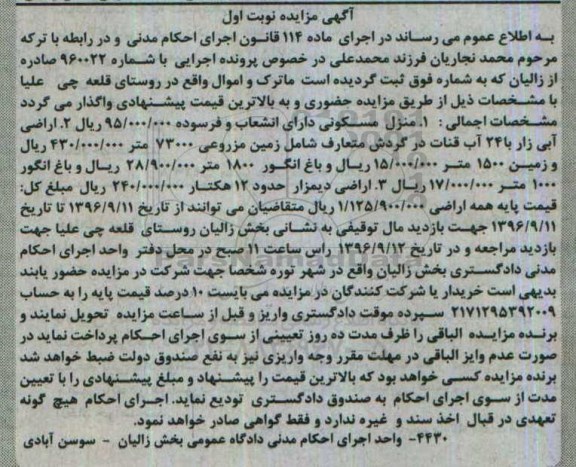 آگهی مزایده نوبت اول
به اطلاع عموم می رساند در اجرای ماده ۱۱۴ قانون اجرای احکام مدنی و در رابطه با ترکه
مرحوم محمد نجاریان فرزند محمدعلی در خصوص پرونده اجرایی با شماره ۹۶۰۰۲۲ صادره
از زالیان که به شماره فوق ثبت گردیده است ماترک و اموال واقع در روستای قلعه چی علیا
با مشخصات ذیل از طریق مزایده حضوری و به بالاترین قیمت پیشنهادی واگذار می گردد
مشخصات اجمالی : ۱. منزل مسکونی دارای انشعاب و فرسوده ۹۵/۰۰۰/۰۰۰ ریال ۲. اراضی
آبی زار با ۲۴ آب قنات در گردش متعارف شامل زمین مزروعی ۷۳۰۰۰ متر ۴۳۰/۰۰۰/۰۰۰ ریال
و زمین ۱۵۰۰ متر ۱۵/۰۰۰/۰۰۰ ریال و باغ انگور ۱۸۰۰ متر ۲۸/۹۰۰/۰۰۰ ریال و باغ انگور
۱۰۰۰ متر ۱۷/۰۰۰/۰۰۰ ریال ۳. اراضی دیمزار حدود ۱۲ هکتار ۲۴۰/۰۰۰/۰۰۰ ریال مبلغ کل:
قیمت پایه همه اراضی ۱/۱۲۵/۹۰۰/۰۰۰ ریال متقاضیان می توانند از تاریخ ۱۳۹۶/۹/۱۱ تا تاریخ
۱۳۹۶/۹/۱۱ جهت بازدید مال توقیفی به نشانی بخش زالیان روستای قلعه چی علیا جهت
بازدید مراجعه و در تاریخ ۱۳۹۶/۹/۱۲ راس ساعت ۱۱ صبح در محل دفتر واحد اجرای احکام
مدنی دادگستری بخش زالیان واقع در شهر توره شخصا جهت شرکت در مزایده حضور یابند
بدیهی است خریدار یا شرکت کنندگان در مزایده می بایست ۱۰ درصد قیمت پایه را به حساب
۲۱۷۱۲۹۵۳۹۲۰۰۹ سپرده موقت دادگستری واریز و قبل از ساعت مزایده تحویل نمایند و
برنده مزایده الباقی را ظرف مدت ده روز تعیینی از سوی اجرای احکام پرداخت نماید در
صورت عدم وایز الباقی در مهلت مقرر وجه واریزی نیز به نفع صندوق دولت ضبط خواهد شد
برنده مزایده کسی خواهد بود که بالاترین قیمت را پیشنهاد و مبلغ پیشنهادی را با تعیین
مدت از سوی اجرای احکام به صندوق دادگستری تودیع نماید. اجرای احکام هیچ گونه
تعهدی در قبال اخذ سند و غیره ندارد و فقط گواهی صادر خواهد نمود.
۴۴۳۰- واحد اجرای احکام مدنی دادگاه عمومی بخش زالیان - سوسن آبادی